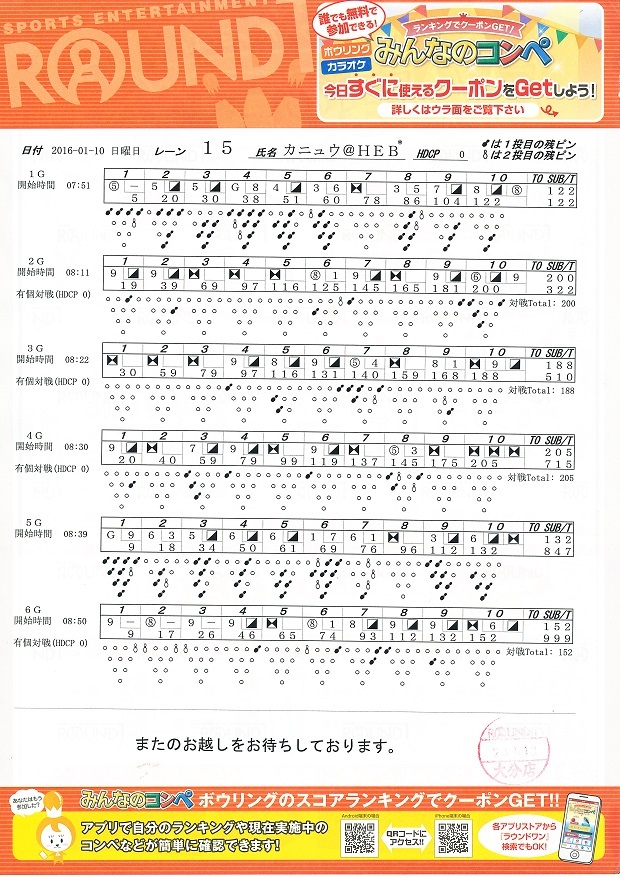 SPORTS ENTERTAINMENT
ROUND1
誰でも無料で
参加できる!
ボウリング
カラオケ
ランキングでクーポンGET!
みんなのコンペ
今日すぐに使えるクーポンをGetしよう!
詳しくはウラ面をご覧下さい
日付 2016-01-10 日曜日 レーン 15 氏名 カニュウ@HEB* HDCP 0
は1投目の残ピン
は2投目の残ピン
1G
開始時間 07:51
1 2 3 4 5 6 7 8 9 10 TO SUB/T
⑤ - 5 5 G 8 4 3 6 3 5 7 8 ⑧ 122
5 20 30 38 51 60 78 86 104 122 122
2G
開始時間 08:11
有個対戦(HDCP 0)
1 2 3 4 5 6 7 8 9 10 TO SUB/T
9 9 ⑧ 1 9 9 ⑥ 9 200
19 39 69 97 116 125 145 165 181 200 322
対戦Total: 200
3G
開始時間 08:22
有個対戦(HDCP 0)
1 2 3 4 5 6 7 8 9 10 TO SUB/T
9 8 9 ⑤ 4 8 1 9 188
30 59 79 97 116 131 140 159 168 188 510
対戦Total: 188
4G
開始時間 08:30
有個対戦(HDCP 0)
1 2 3 4 5 6 7 8 9 10 TO SUB/T
9 7 9 9 ⑤ 3 205
20 40 59 79 99 119 137 145 175 205 715
対戦Total: 205
5G
開始時間 08:39
1 2 3 4 5 6 7 8 9 10 TO SUB/T
G 9 6 3 5 6 6 1 7 6 1 3 6 132
9 18 34 50 61 69 76 96 112 132 847
6G
開始時間 08:50
有個対戦(HDCP 0)
1 2 3 4 5 6 7 8 9 10 TO SUB/T
9 - ⑧ - 9 - 9 ⑧ 1 8 9 9 6 152
9 17 26 46 65 74 93 112 132 152 999
対戦Total: 152
またのお越しをお待ちしております。
大分店
あなたはもう
参加した?
みんなのコンペ ボウリングのスコアランキングでクーポンGET!!
アプリで自分のランキングや現在実施中の
コンペなどが簡単に確認できます!
Android端末の場合
QRコードに
アクセス!!
iPhone端末の場合
各アプリストアから
「ラウンドワン」
検索でもOK!